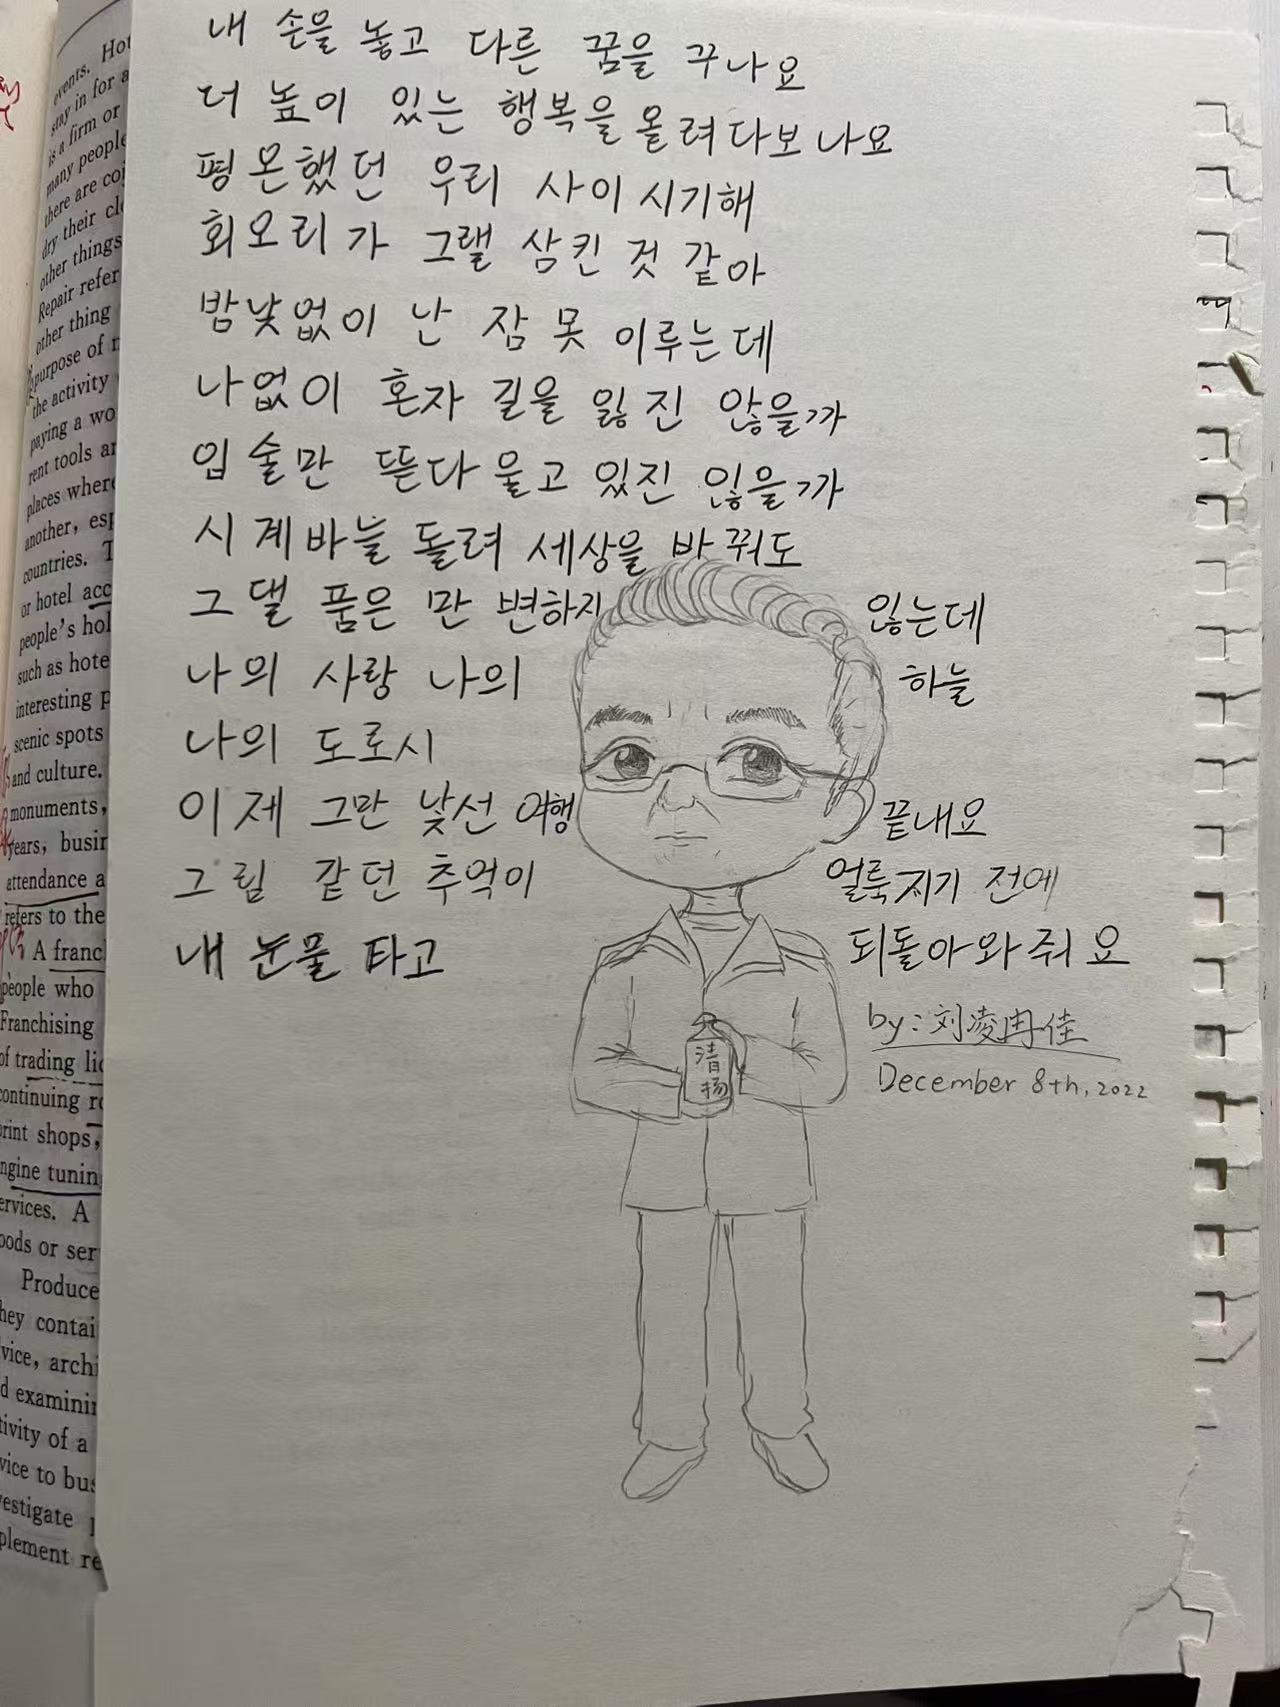 events. Hot
stay in for a
is a firm or
many people
there are co
dry their cl
other things
Repair refer
other thing
purpose of
the activity
paying a wo
rent tools a
places where
another, esp
countries. T
or hotel acc
people's hol
such as hote
interesting p
scenic spots
and culture.
monuments,
years, busin
attendance a
refers to the
A franc
people who
Franchising
of trading lic
continuing r
print shops,
ngine tunin
ervices. A
oods or ser
Produce
hey contai
vice, archi
d examinin
tivity of a
vice to bus
vestigate
plement re
내 손을 놓고 다른 꿈을 꾸나요
더 높이 있는 행복을 올려다보나요
평온했던 우리 사이 시기해
회오리가 그댈 삼킨 것 같아
밤낮없이 난 잠 못 이루는데
나없이 혼자 길을 잃진 않을까
입술만 뜯다 울고 있진 잂을까
시계바늘 돌려 세상을 바꿔도
그댈 품은 만 변하지 잂는데
나의 사랑 나의 하늘
나의 도로시
이제 그만 낯선 여행 끝내요
그림 같던 추억이 얼룩지기 전에
내 눈물 타고 되돌아와줘요
by:刘凌冉佳
December 8th,2022
清
扬